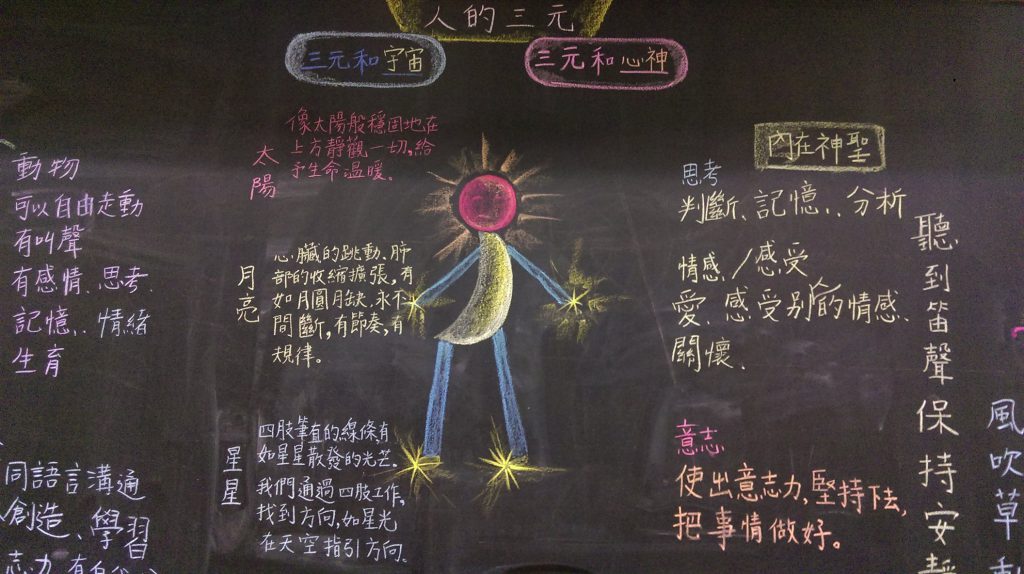 人的三元
三元和宇宙
三元和心神
動物
可以自由走動
有叫聲
有感情、思考、
記憶、情緒
生育
同語言溝通
創造、學習
太陽
像太陽般穩固地在
上方靜觀一切,給
予生命温暖。
月亮
心臟的跳動、肺
部的收縮擴張,有
如月圓月缺、永不
間斷,有節奏,有
規律。
星星
四肢筆直的線條,有
如星星散發的光芒.
我們通過四肢工作,
找到方向,如星光
在天空指引方向。
內在神聖
思考
判斷、記憶、分析
情感/感受
愛、感受別人的情感、
關懷、
意志
使出意志力,堅持下去,
把事情做好。
聽到笛聲保持安靜
風吹草